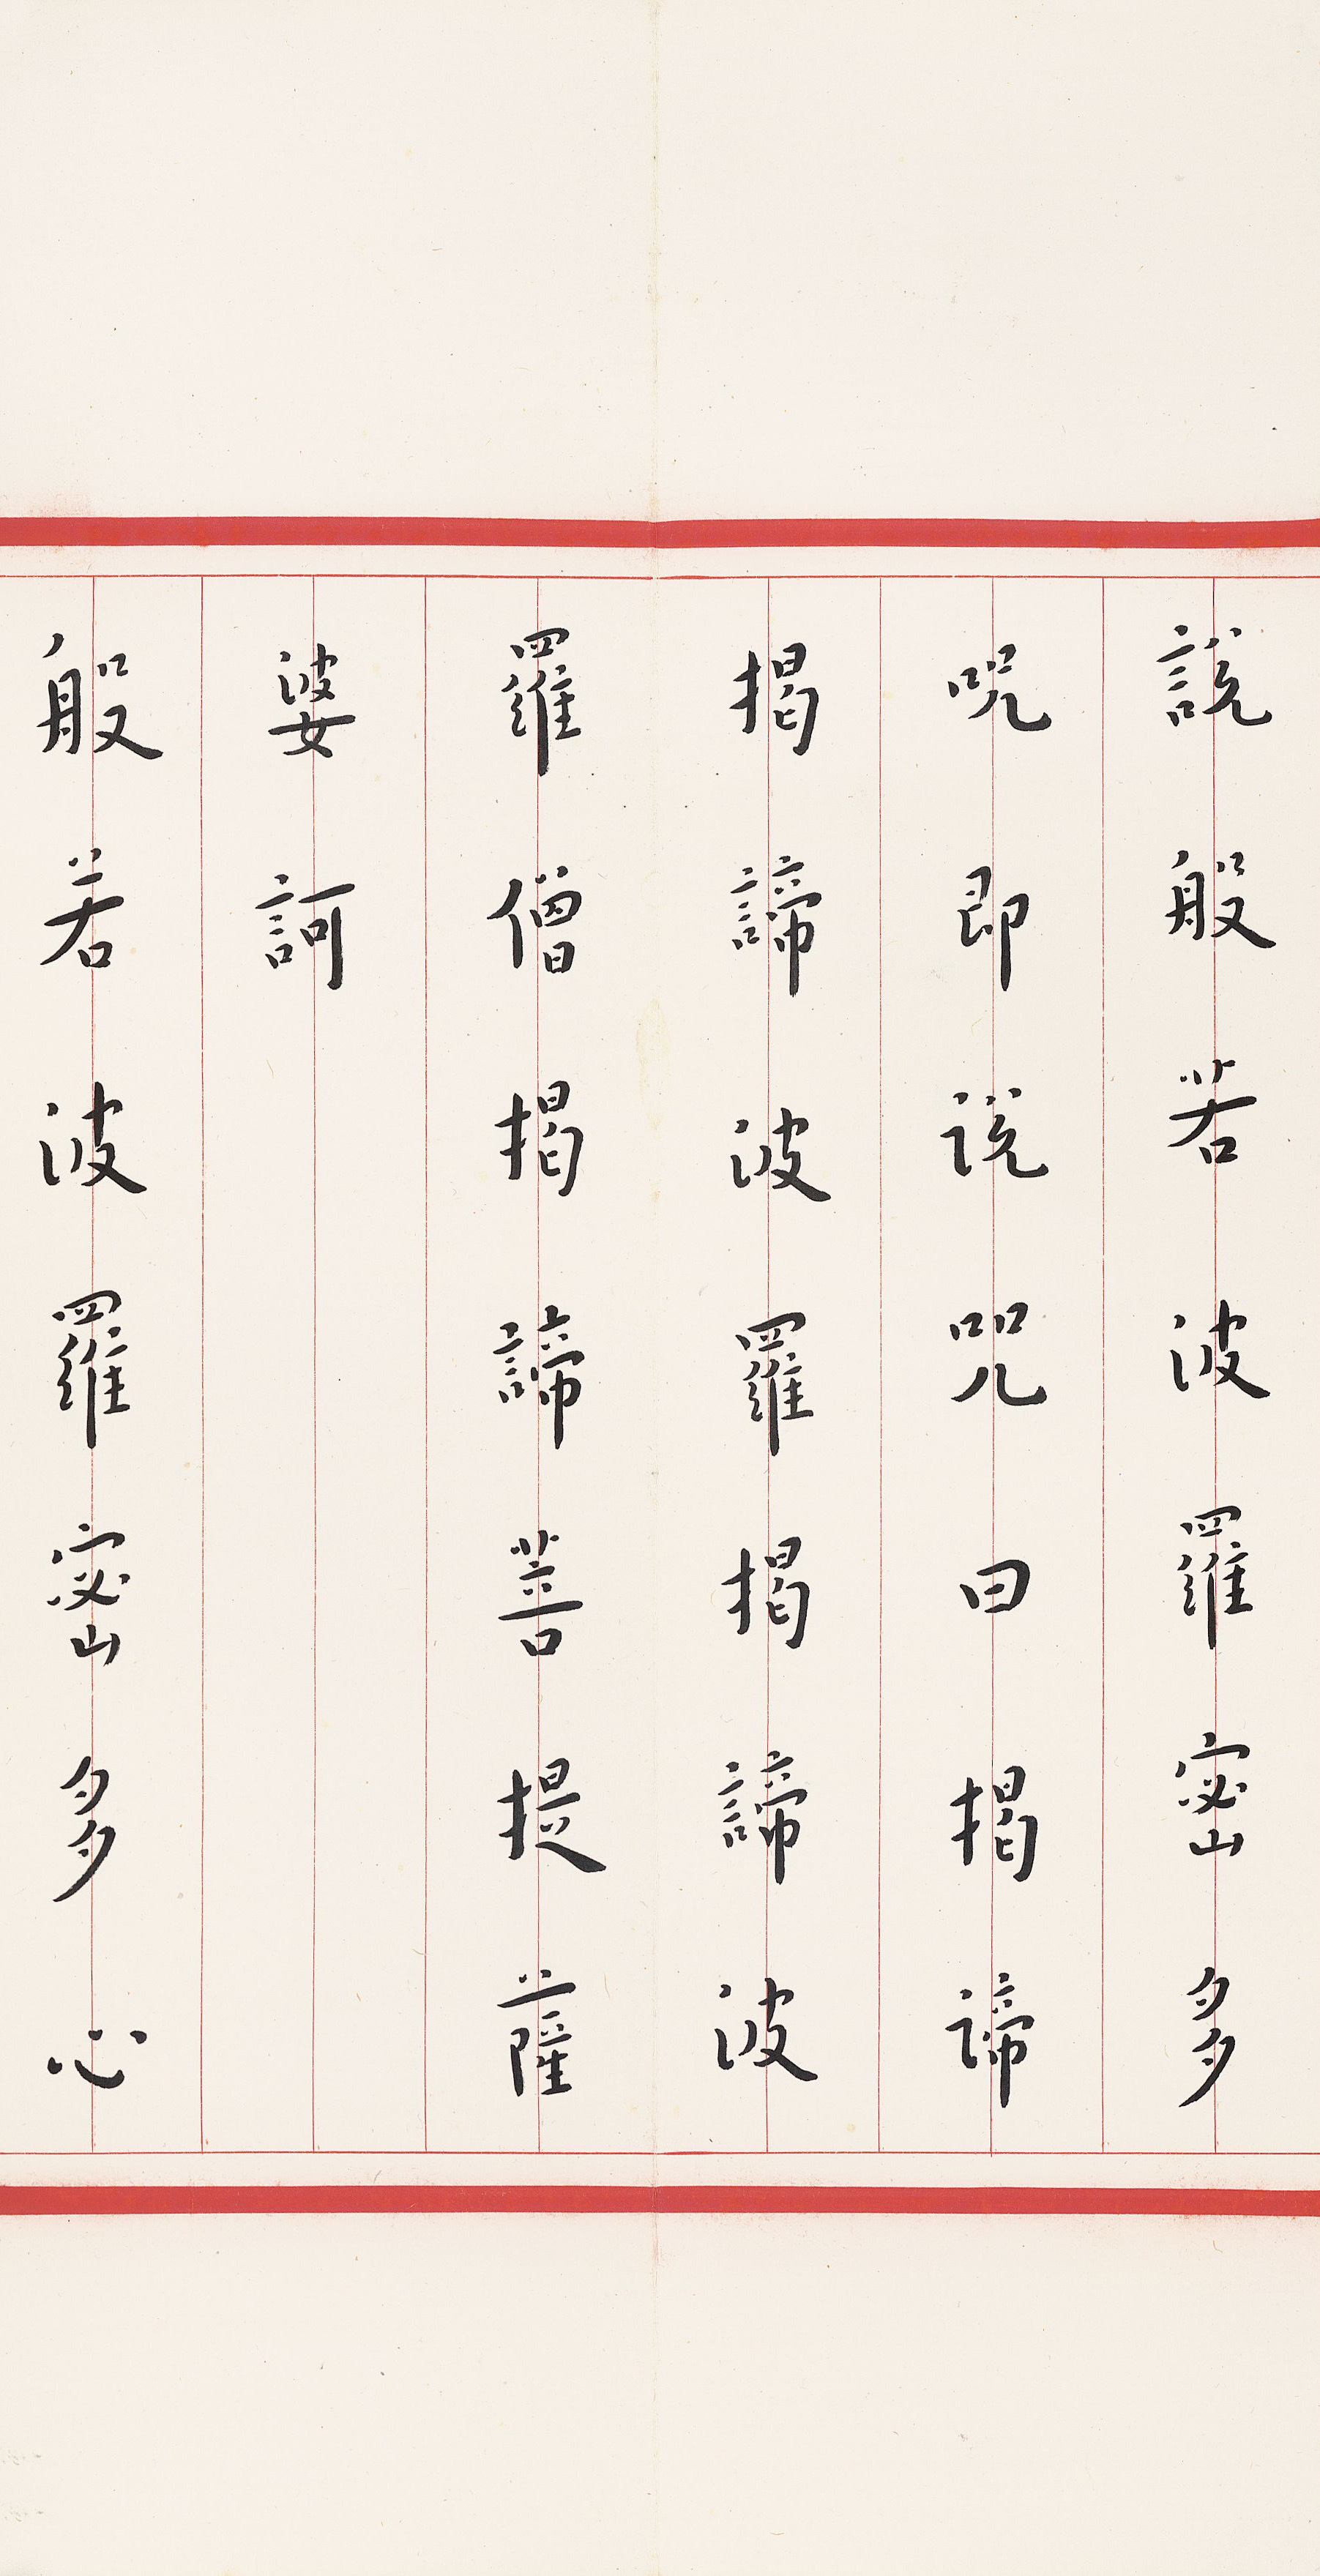 說般若波羅蜜多
咒即說咒曰揭諦
揭諦波羅揭諦波
羅僧揭諦菩提薩
婆訶
般若波羅蜜多心